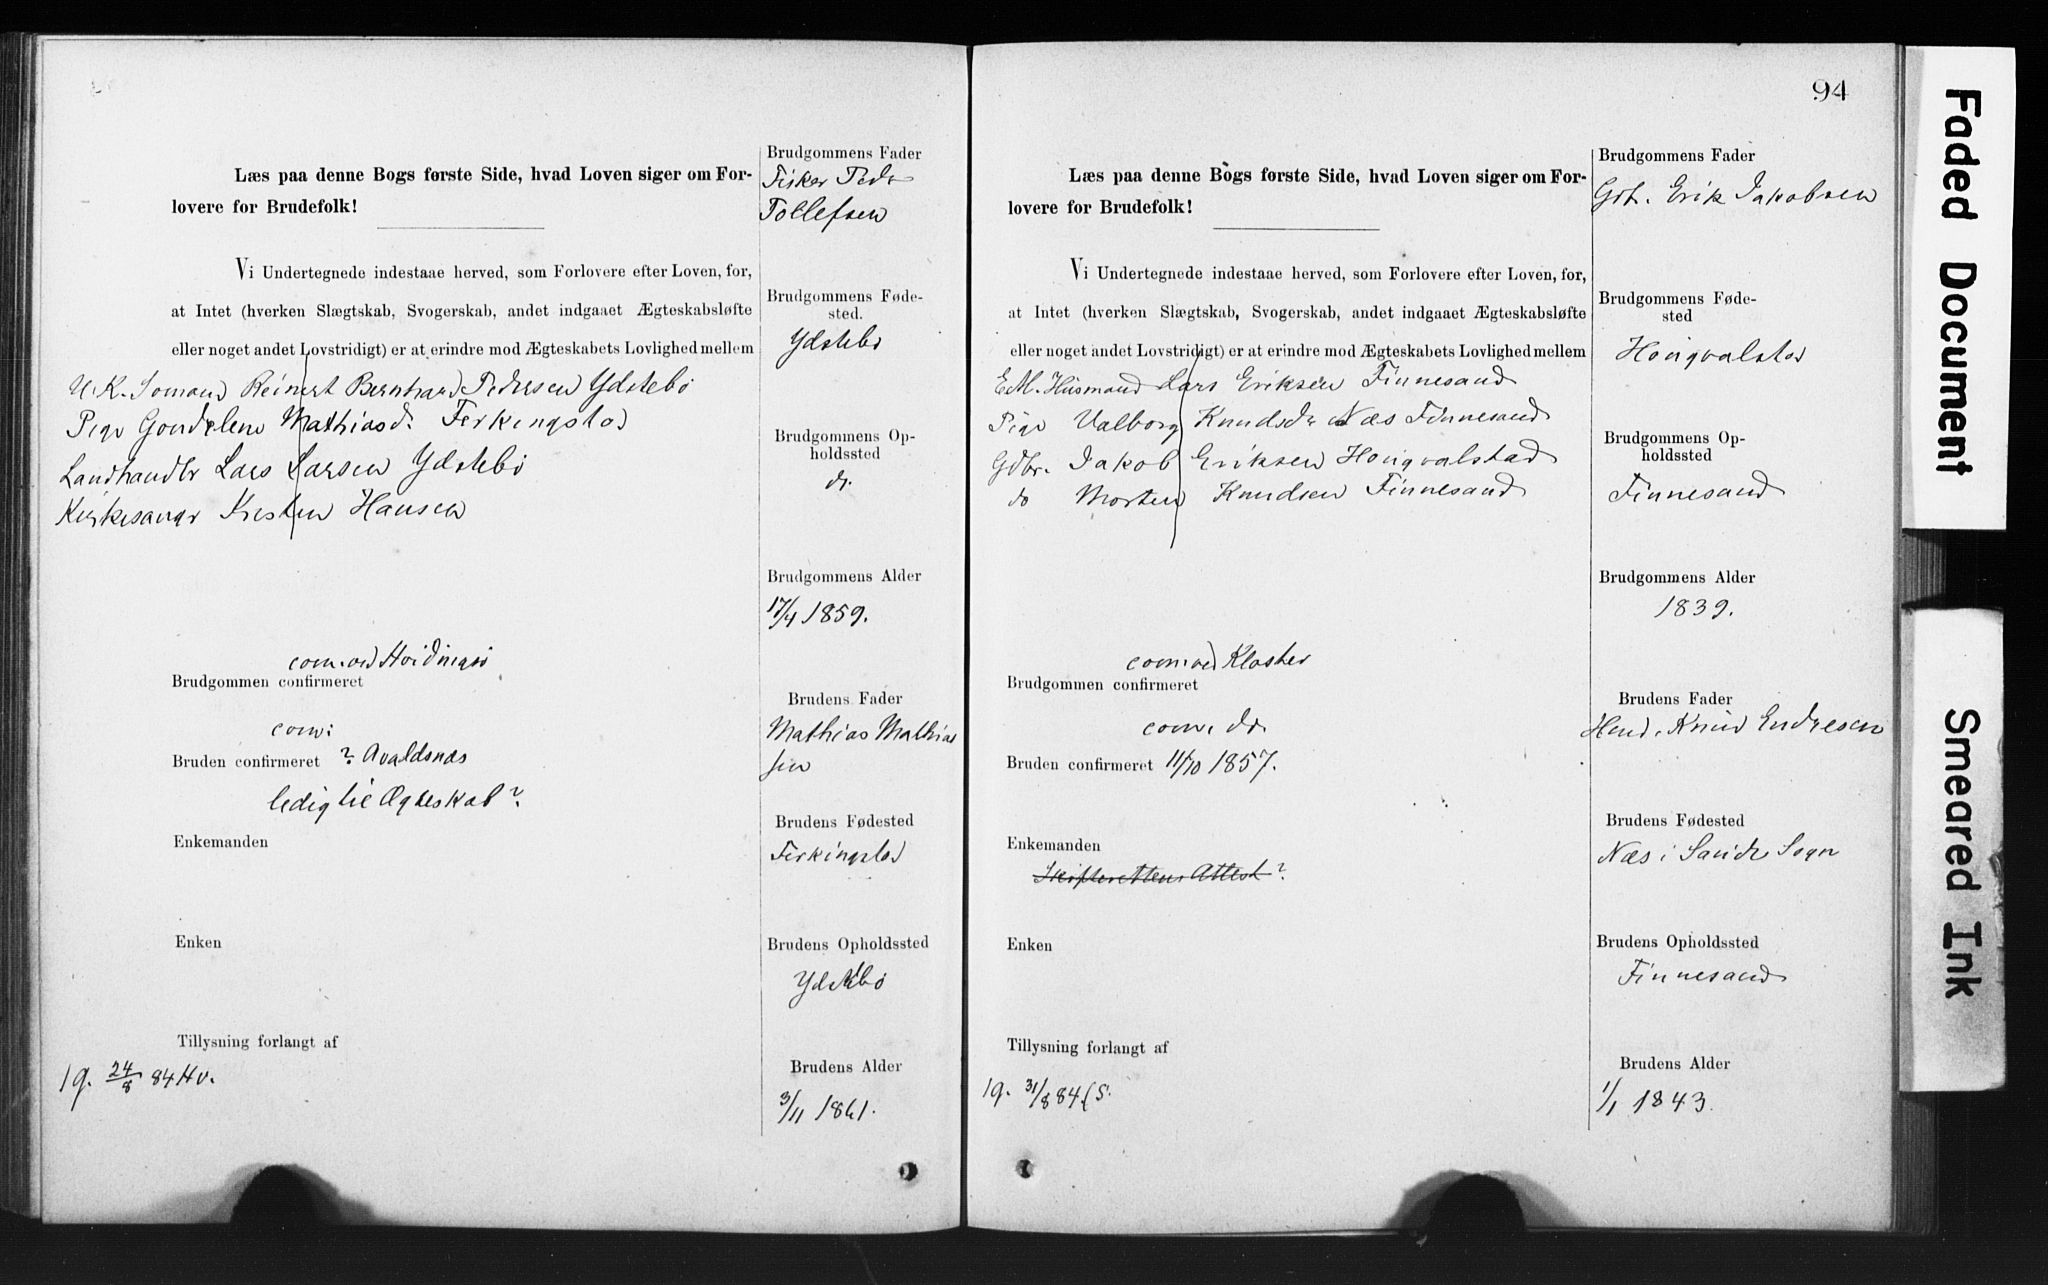 Læs paa denne Bogs første Side, hvad Loven siger om For-
lovere for Brudefolk!
Vi Undertegnede indestaae herved, som Forlovere efter Loven, for,
at Intet (hverken Slægtskab, Svogerskab, andet indgaaet Ægteskabsløfte
eller noget andet Lovstridigt) er at erindre mod Ægteskabets Lovlighed mellem
U.K. Somand Reinert Bernhard Pedersen Ydstebø
Pige Gondelene Mathiasd. Ferkingstad
Landhandlr Lars Larsen Ydstebø
Kirkesangr Kresten Hansen
com. ved Hvidingsø
Brudgommen confirmeret
com:
Bruden confirmeret ? Avaldsnæs
ledig til Ægteskab?
Enkemanden
Enken
Tillysning forlangt af
1g. 24/8 84 Hv.
Brudgommens Fader
Fisker Peder
Tollefsen
Brudgommens Føde-
sted.
Ydstebø
Brudgommens Op-
holdssted
do.
Brudgommens Alder
17/4 1859.
Brudens Fader
Mathias Mathias
sen
Brudens Fødested
Ferkingstad
Brudens Opholdssted
Ydstebø
Brudens Alder
3/11 1861.
94
Læs paa denne Bogs første Side, hvad Loven siger om For-
lovere for Brudefolk!
Vi Undertegnede indestaae herved, som Forlovere efter Loven, for,
at Intet (hverken Slægtskab, Svogerskab, andet indgaaet Ægteskabsløfte
eller noget andet Lovstridigt) er at erindre mod Ægteskabets Lovlighed mellem
E.M. Husmand Lars Eriksen Finnesand
Pige Valborg Knudsdr Næs Finnesand
Gdbr. Jakob Eriksen Hougvalstad
do Morten Knudsen Finnesand
com. ved Kloster
Brudgommen confirmeret
com. do.
Bruden confirmeret 11/10 1857.
Enkemanden
Skifterettens Attest?
Enken
Tillysning forlangt af
1g. 31/8 84 (S.
Brudgommens Fader
Gdbr. Erik Jakobsen
Brudgommens Føde-
sted
Hougvalstad
Brudgommens Op-
holdssted
Finnesand
Brudgommens Alder
1839.
Brudens Fader
Hmd. Knud Endresen
Brudens Fødested
Næs i Sands Sogn
Brudens Opholdssted
Finnesand
Brudens Alder
1/1 1843.
Faded Document
Smeared Ink